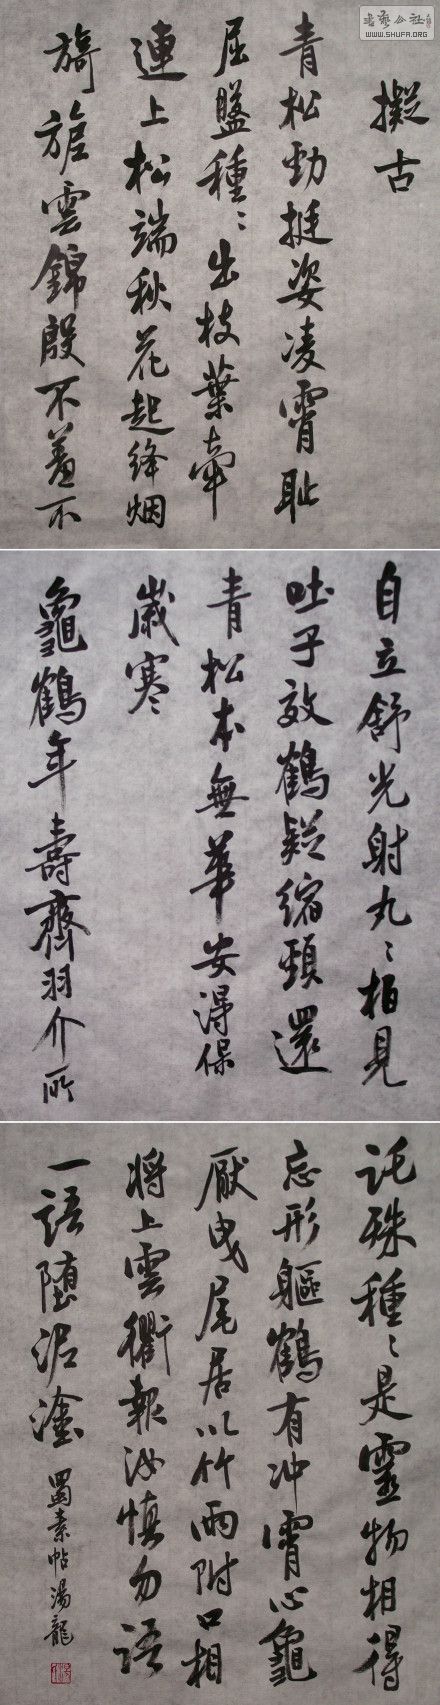 書藝公社
WWW.SHUFA.ORG
擬古
青松勁挺姿凌霄耻
屈盤種〻出枝葉牽
連上松端秋花起絳烟
旖旎雲錦殷不羞不
自立舒光射丸〻柏見
吐子效鶴疑縮頸還
青松本無華安得保
歲寒
龜鶴年壽齊羽介所
託殊種〻是靈物相得
忘形軀鶴有冲霄心龜
厭曳尾居以竹兩附口相
將上雲衢報汝慎勿語
一語墮泥塗 蜀素帖湯龍